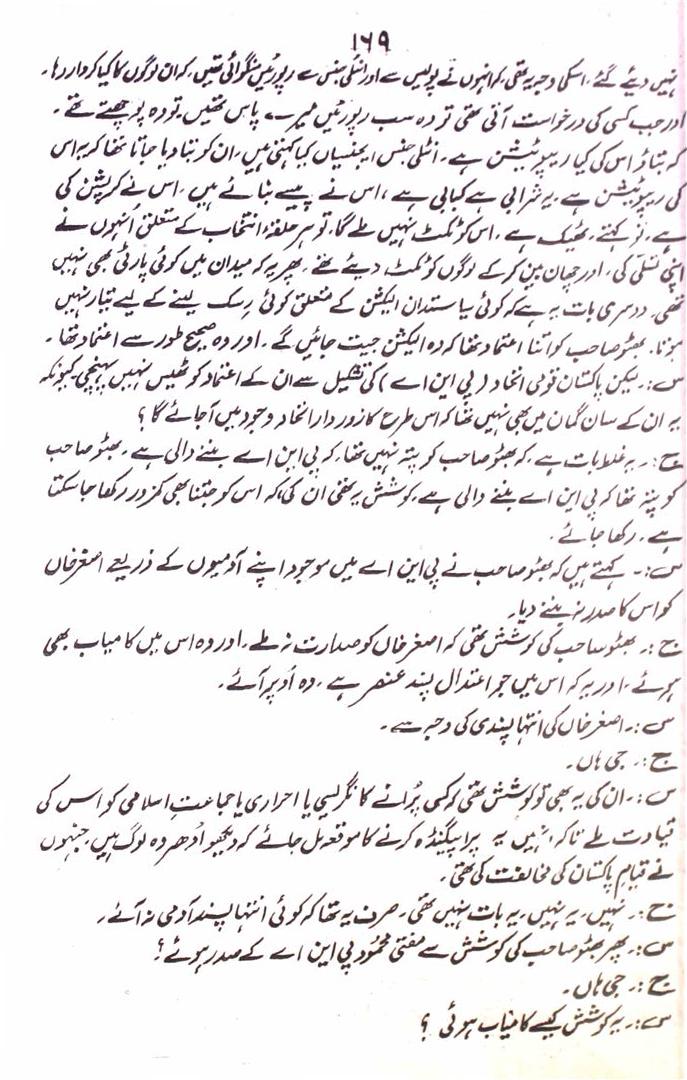 ۱۶۹
نہیں دیئے گئے۔ اسکی وجہ یہ تھی کہ انہوں نے پولیس سے اور انٹلی جنس سے رپورٹیں منگوائی تھیں، کہ ان لوگوں کا کیا کردار رہا۔
اور جب کسی کی درخواست آتی تھی تو وہ سب رپورٹیں میرے پاس تھیں۔ تو وہ پوچھتے تھے۔
کہ بتاؤ اس کی کیا ریپوٹیشن ہے۔ انٹلی جنس ایجنسیاں کیا کہتی ہیں۔ ان کو بتا دیا جاتا تھا کہ یہ اس
کی ریپوٹیشن ہے۔ یہ شرابی ہے کبابی ہے، اس نے پیسے بنائے ہیں۔ اس نے کرپشن کی
ہے۔ تو کہتے۔ ٹھیک ہے۔ اس کو ٹکٹ نہیں ملے گا۔ تو ہر حلقۂ انتخاب کے متعلق اُنہوں نے
اپنی تسلی کی، اور چھان بین کر کے لوگوں کو ٹکٹ دیئے تھے۔ پھر یہ کہ میدان میں کوئی پارٹی بھی نہیں
تھی۔ دوسری بات یہ ہے کہ کوئی سیاستدان الیکشن کے متعلق کوئی رسک لینے کے لیے تیار نہیں
ہوتا۔ بھٹو صاحب کو اتنا اعتماد تھا کہ وہ الیکشن جیت جائیں گے۔ اور وہ صحیح طور سے اعتماد تھا۔
س:۔ لیکن پاکستان قومی اتحاد (پی این اے) کی تشکیل سے ان کے اعتماد کو ٹھیس نہیں پہنچی۔ کیونکہ
یہ ان کے سان گمان میں بھی نہیں تھا کہ اس طرح کا زور دار اتحاد وجود میں آ جائے گا؟
ج:۔ یہ غلط بات ہے، کہ بھٹو صاحب کو پتہ نہیں تھا۔ کہ پی این اے بننے والی ہے۔ بھٹو صاحب
کو پتہ تھا کہ پی این اے بننے والی ہے، کوشش یہ تھی ان کی، کہ اس کو جتنا بھی کمزور رکھا جا سکتا
ہے۔ رکھا جائے۔
س:۔ کہتے ہیں کہ بھٹو صاحب نے پی این اے میں موجود اپنے آدمیوں کے ذریعے اصغر خاں
کو اس کا صدر نہ بننے دیا۔
ج:۔ بھٹو صاحب کی کوشش تھی کہ اصغر خاں کو صدارت نہ ملے۔ اور وہ اس میں کامیاب بھی
ہوئے۔ اور یہ کہ اس میں جو اعتدال پسند عنصر ہے۔ وہ اُوپر آئے۔
س:۔ اصغر خاں کی انتہا پسندی کی وجہ سے۔
ج:۔ جی ہاں۔
س:۔ ان کی یہ بھی تو کوشش تھی کہ کسی پُرانے کانگرسی یا احراری یا جماعت اسلامی کو اس کی
قیادت ملے تاکہ انہیں یہ پراپیگنڈہ کرنے کا موقعہ مل جائے کہ دیکھو اُدھر وہ لوگ ہیں، جنہوں
نے قیام پاکستان کی مخالفت کی تھی۔
ج:۔ نہیں۔ یہ نہیں۔ یہ بات نہیں تھی۔ صرف یہ تھا کہ کوئی انتہا پسند آدمی نہ آئے۔
س:۔ پھر بھٹو صاحب کی کوشش سے مفتی محمُود پی این اے کے صدر ہوئے؟
ج:۔ جی ہاں۔
س:۔ یہ کوشش کیسے کامیاب ہوئی؟